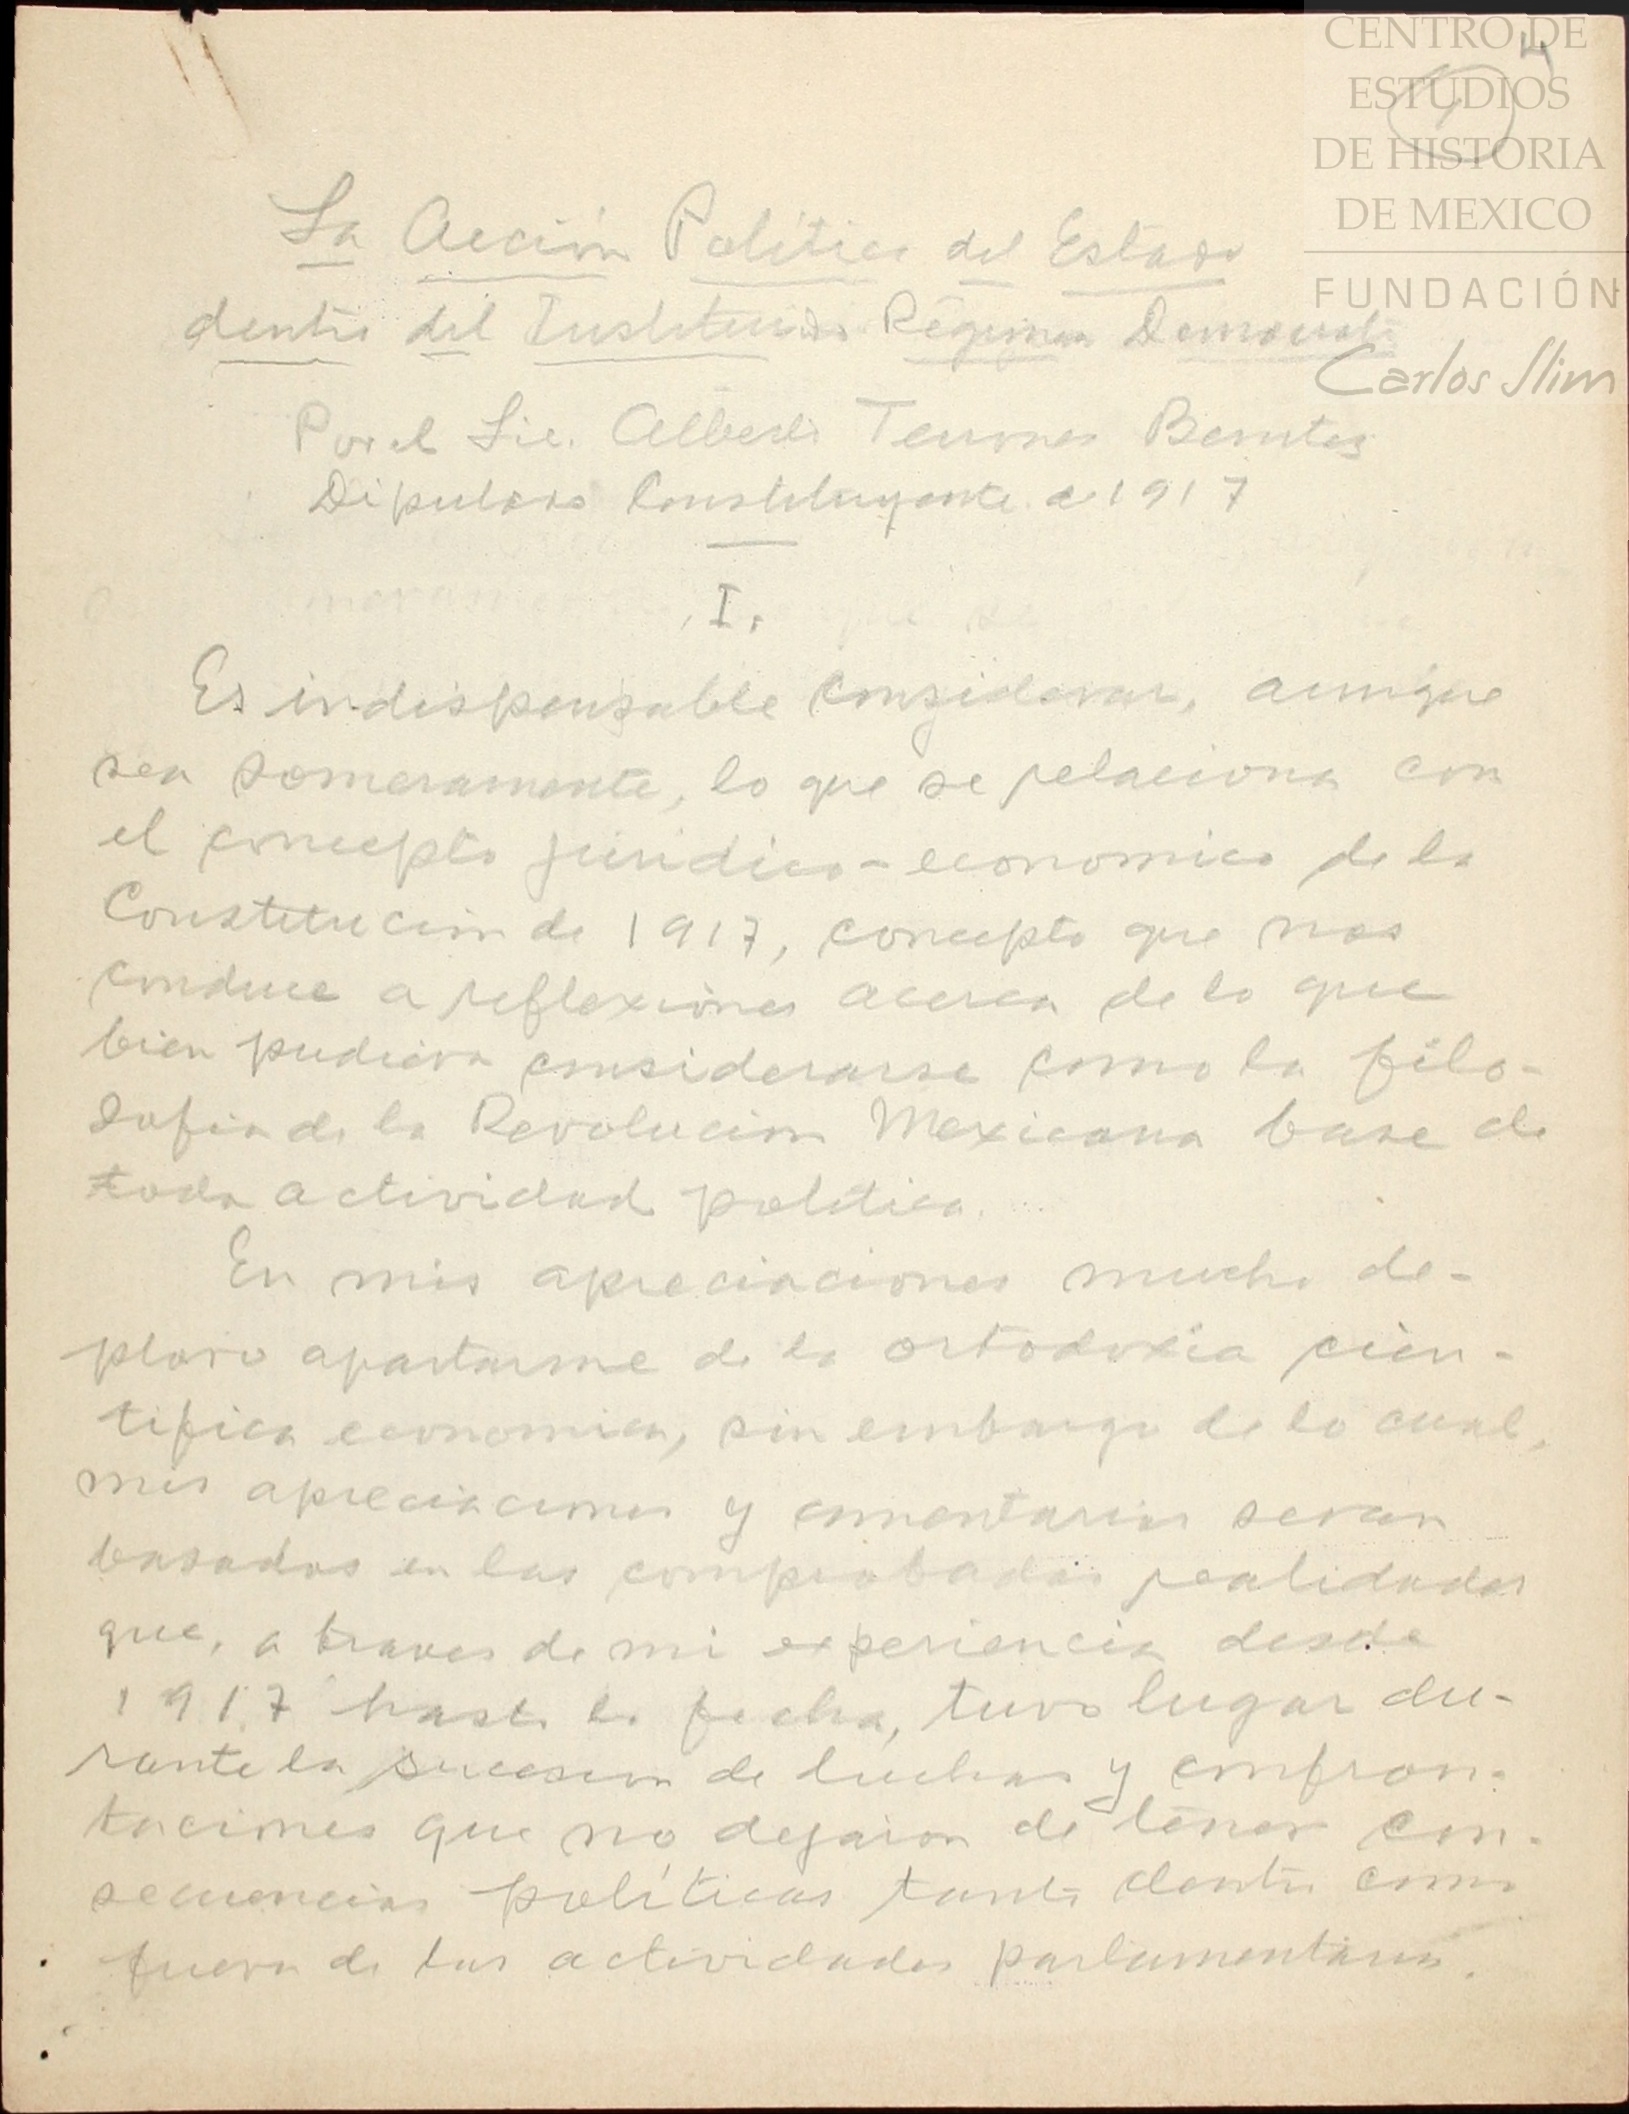 CENTRO DE
ESTUDIOS
DE HISTORIA
DE MEXICO
FUNDACIÓN
Carlos Slim
La Acción Politica del Estado
dentro del Instituido Régimen
Por el Lic. Alberto Terrones Benitez
Diputado Constituyente de 1917
I.
Es indispensable considerar, aunque
sea someramente, lo que se relaciona con
el concepto juridico-economico de la
Constitucion de 1917, concepto que nos
conduce a reflexiones acerca de lo que
bien pudiera considerarse como la filo-
sofia de la Revolucion Mexicana base de
toda actividad politica.
En mis apreciaciones mucho de-
ploro apartarme de la ortodoxia cien-
tifica economica, sin embargo de lo cual,
mis apreciaciones y comentarios seran
basados en las comprobadas realidades
que, a traves de mi experiencia desde
1917 hasta la fecha, tuvo lugar du-
rante la sucesion de luchas y confron-
taciones que no dejaron de tener con-
secuencias políticas tanto dentro como
fuera de las actividades parlamentarias.